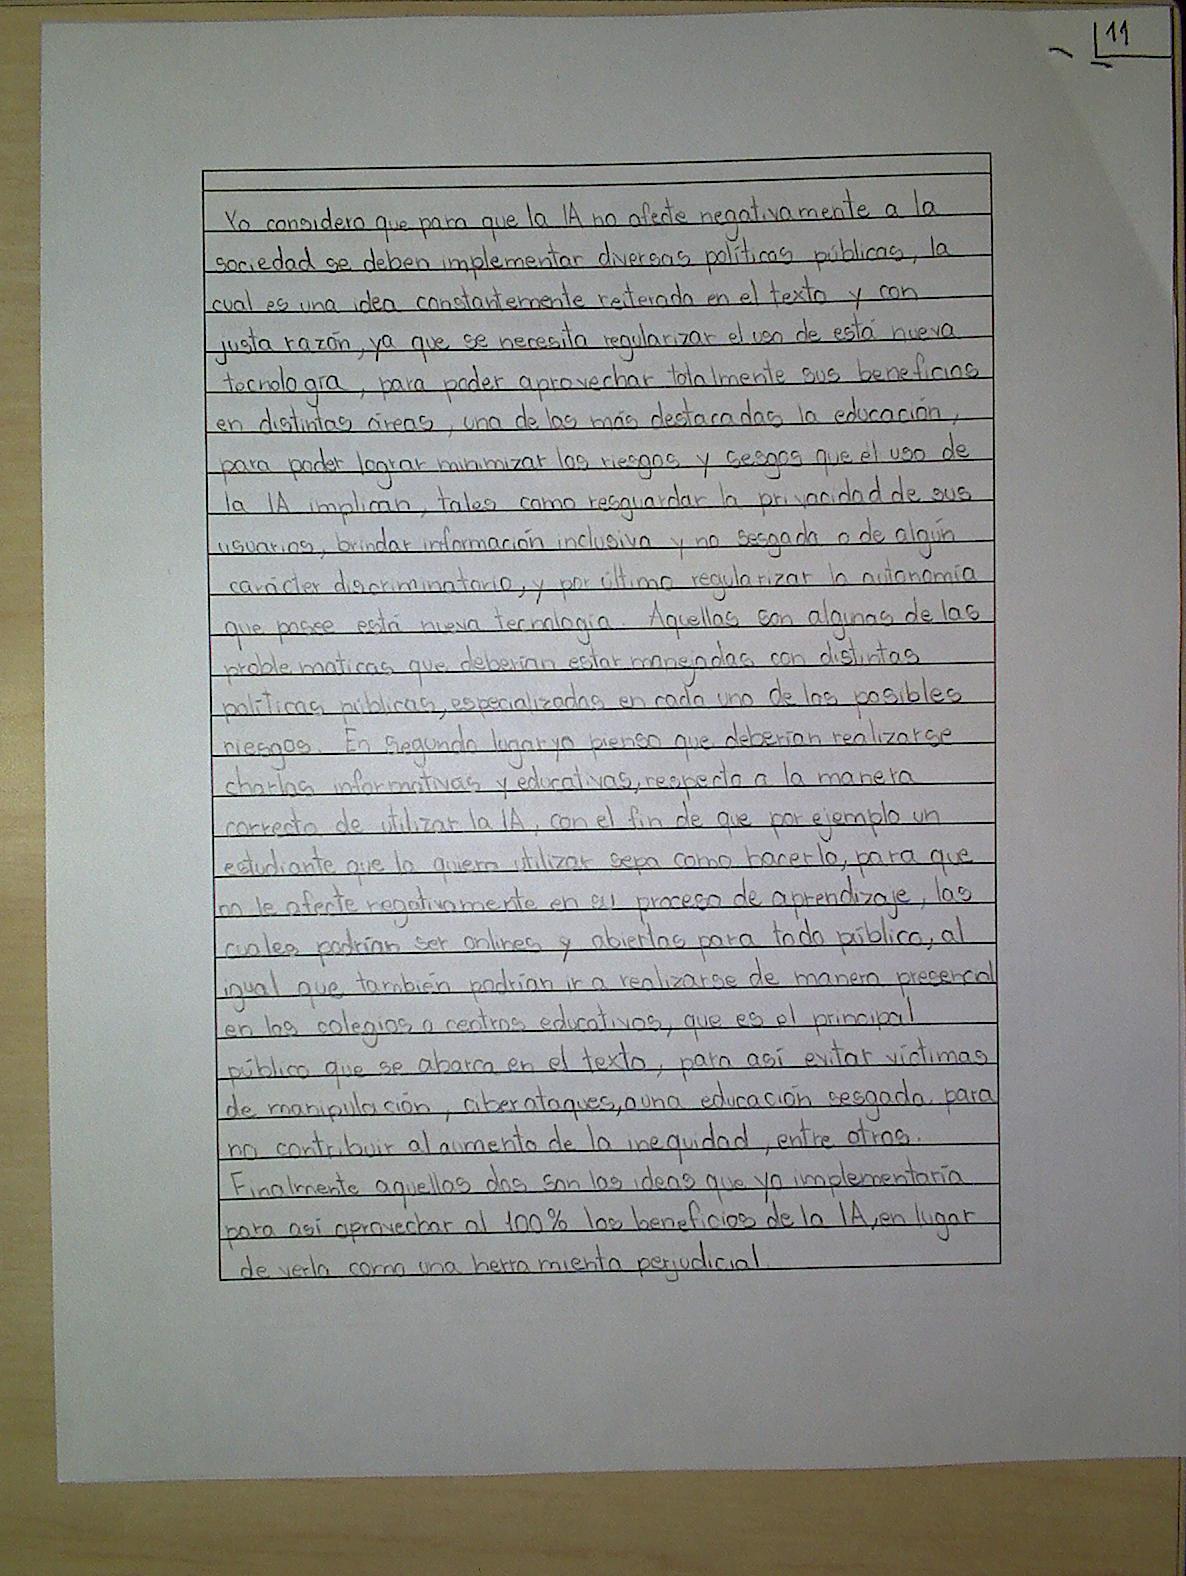 11
Yo considero que para que la IA no afecte negativamente a la
sociedad se deben implementar diversas políticas públicas, la
cual es una idea constantemente reiterada en el texto y con
justa razón, ya que se necesita regularizar el uso de está nueva
tecnología, para poder aprovechar totalmente sus beneficios
en distintas áreas, una de las más destacadas la educación,
para poder lograr minimizar los riesgos y sesgos que el uso de
la IA implican, tales como resguardar la privacidad de sus
usuarios, brindar información inclusiva y no sesgada o de algún
carácter discriminatorio, y por último regularizar la autonomía
que posee está nueva tecnología. Aquellas son algunas de las
problematicas que deberían estar manejadas con distintas
políticas públicas, especializadas en cada uno de los posibles
riesgos. En segundo lugar yo pienso que deberían realizarse
charlas informativas y educativas, respecto a la manera
correcta de utilizar la IA, con el fin de que por ejemplo un
estudiante que la quiera utilizar sepa como hacerlo, para que
no le afecte negativamente en su proceso de aprendizaje, las
cuales podrían ser onlines y abiertas para todo público, al
igual que también podrían ir a realizarse de manera presencial
en los colegios o centros educativos, que es el principal
público que se abarca en el texto, para así evitar víctimas
de manipulación, ciberataques, o una educación sesgada para
no contribuir al aumento de la inequidad, entre otros.
Finalmente aquellas dos son las ideas que yo implementaría
para así aprovechar al 100% los beneficios de la IA, en lugar
de verla como una herramienta perjudicial.